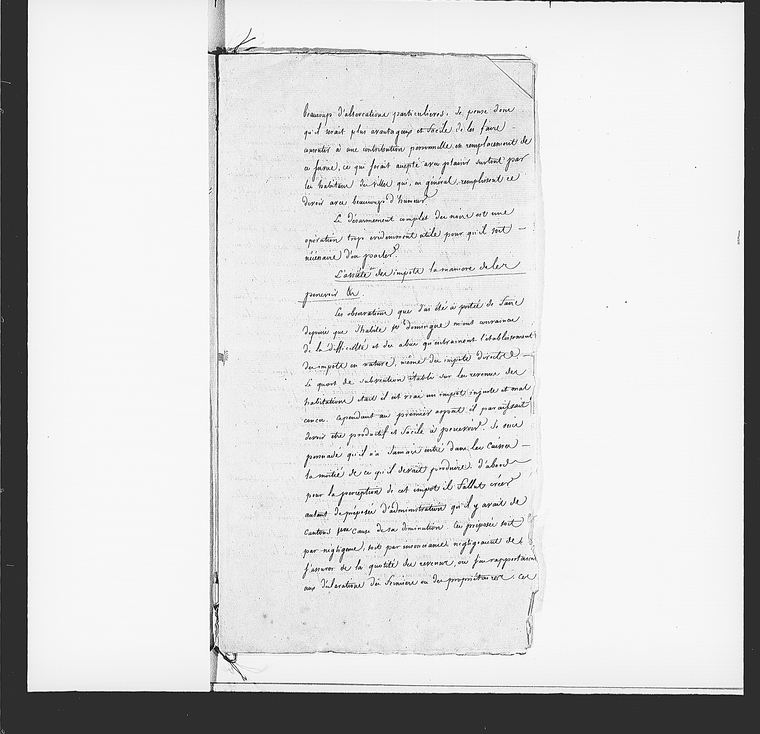 beaucoup d'altercations particulieres. Je pense donc
qu'il serait plus avantageux et facile de les faire
consentir à une contribution personnelle en remplacement de
ce service, ce qui serait accepté avec plaisir surtout par
les habitans des villes qui, en général remplissent ce
devoir avec beaucoup d'humeur.
Le désarmement complet des noirs est une
opération trop evidemment utile pour qu'il soit
nécessaire d'en parler.
L'assiete des impots la maniere de les
percevoir &c.
Les observations que j'ai été à portée de faire
depuis que j'habite St domingue m'ont convaincu
de la difficulté et des abus qu'entrainent l'établissement
des impots en nature, même des impots directs.
Le quart de subvention établi sur les revenus des
habitations etait il est vrai un impot injuste et mal
concu. cependant au premier apperçu il paraissait
devoir être productif et facile à percevoir. Je suis
persuadé qu'il n'a jamais entré dans les Caisses
la moitié de ce qu'il devait produire. d'abord
pour la perception de cet impot il fallut créer
autant de préposés d'administration qu'il y avait de
cantons cause de sa diminution. Ces préposés soit
par négligence, soit par insouciance negligeaient de
s'assurer de la quotité des revenus, ou s'en rapportaient
aux déclarations des fermiers ou des propriétaires. car